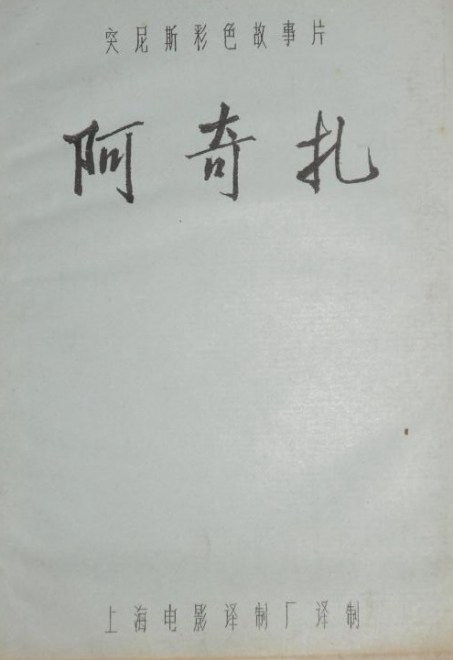 突尼斯彩色故事片
阿奇扎
上海电影译制厂译制